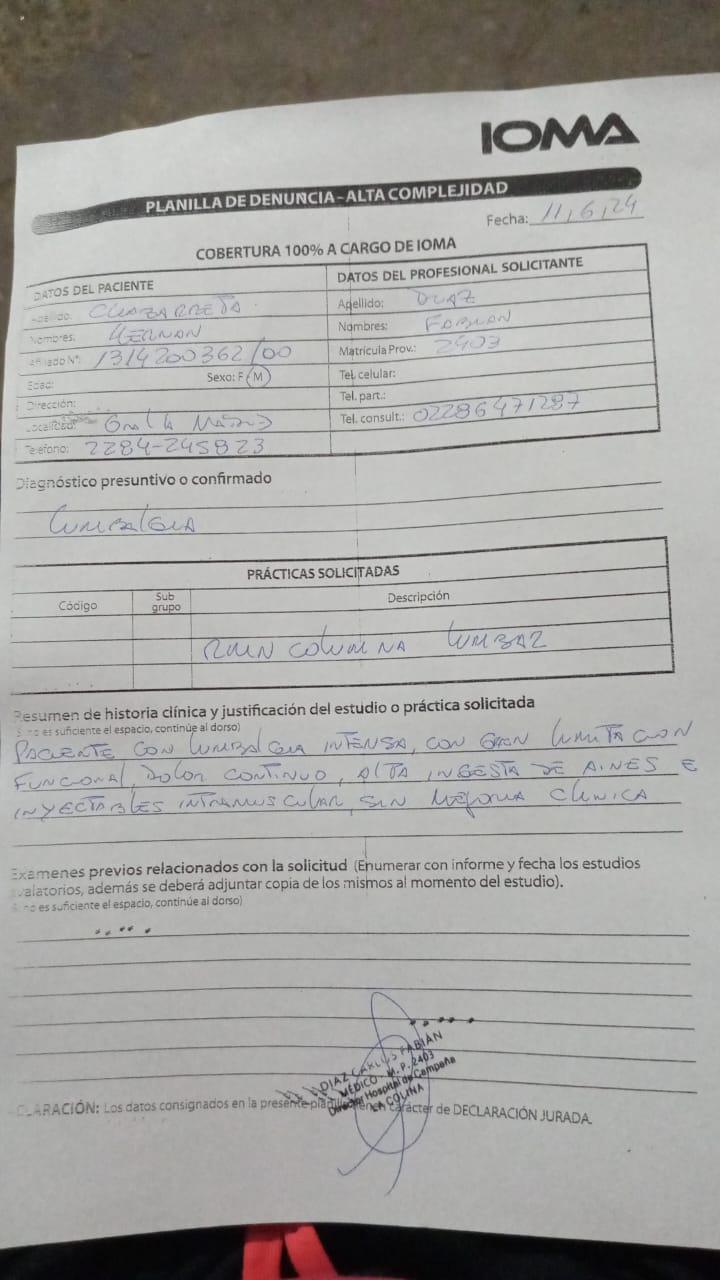 IOMA
PLANILLA DE DENUNCIA - ALTA COMPLEJIDAD
Fecha: 11,6,24
COBERTURA 100% A CARGO DE IOMA
DATOS DEL PACIENTE
Apellido: CHAZARRETA
Nombres: HERNAN
Afiliado N°: 1314200362/00
Edad: Sexo: F (M)
Dirección:
Localidad: Gral La Madrid
Teléfono: 2284-245823
DATOS DEL PROFESIONAL SOLICITANTE
Apellido: DIAZ
Nombres: FABIAN
Matrícula Prov.: 2403
Tel. celular:
Tel. part.:
Tel. consult.: 02286471287
Diagnóstico presuntivo o confirmado
LUMBALGIA
PRÁCTICAS SOLICITADAS
Código Sub grupo Descripción
RMN COLUMNA LUMBAR
Resumen de historia clínica y justificación del estudio o práctica solicitada
(Si no es suficiente el espacio, continúe al dorso)
PACIENTE CON LUMBALGIA INTENSA, CON GRAN LIMITACION
FUNCIONAL, DOLOR CONTINUO, ALTA INGESTA DE AINES E
INYECTABLES INTRAMUSCULAR, SIN MEJORIA CLINICA
Exámenes previos relacionados con la solicitud (Enumerar con informe y fecha los estudios
valatorios, además se deberá adjuntar copia de los mismos al momento del estudio).
(Si no es suficiente el espacio, continúe al dorso)
DIAZ CARLOS FABIÁN
MÉDICO - M.P. 2403
Director Hospital de Campaña
LA COLINA
DECLARACIÓN: Los datos consignados en la presente planilla tienen carácter de DECLARACIÓN JURADA.